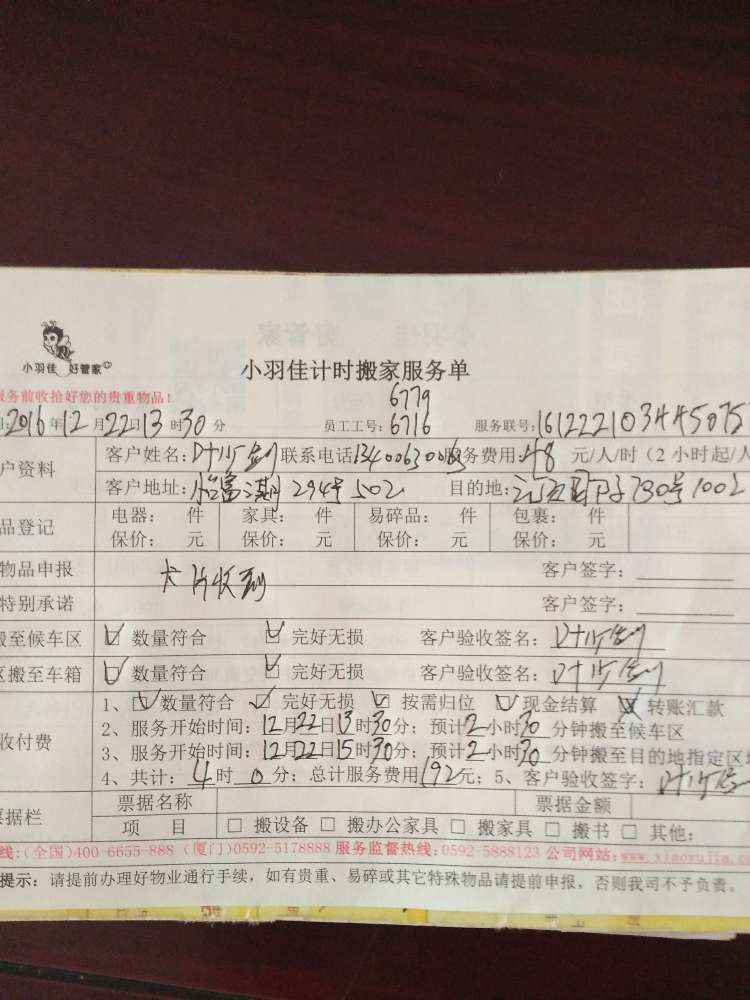 小羽佳 好管家
小羽佳计时搬家服务单
服务前收拾好您的贵重物品!
6779
2016年12月22日13时30分 员工工号: 6716 服务联号:161222103445075
户资料 客户姓名: 联系电话13400630063服务费用:48元/人/时(2小时起/人
客户地址:怡富 294号502 目的地: 730号1002
品登记 电器: 件 家具: 件 易碎品: 件 包裹: 件
保价: 元 保价: 元 保价: 元 保价: 元
物品申报 卡片收到 客户签字:
特别承诺 客户签字:
搬至候车区 数量符合 完好无损 客户验收签名:
区搬至车箱 数量符合 完好无损 客户验收签名:
1、数量符合 完好无损 按需归位 现金结算 转账汇款
收付费 2、服务开始时间:12月22日13时30分;预计2小时30分钟搬至候车区
3、服务开始时间:12月22日15时30分;预计2小时30分钟搬至目的地指定区域
4、共计:4时0分;总计服务费用192元;5、客户验收签字:
票据栏 票据名称 票据金额
项 目 □ 搬设备 □ 搬办公家具 □ 搬家具 □ 搬书 □ 其他:
线:(全国)400-6655-888 (厦门)0592-5178888 服务监督热线:0592-5888123 公司网站:www.xiaoyujia.com
提示:请提前办理好物业通行手续,如有贵重、易碎或其它特殊物品请提前申报,否则我司不予负责。